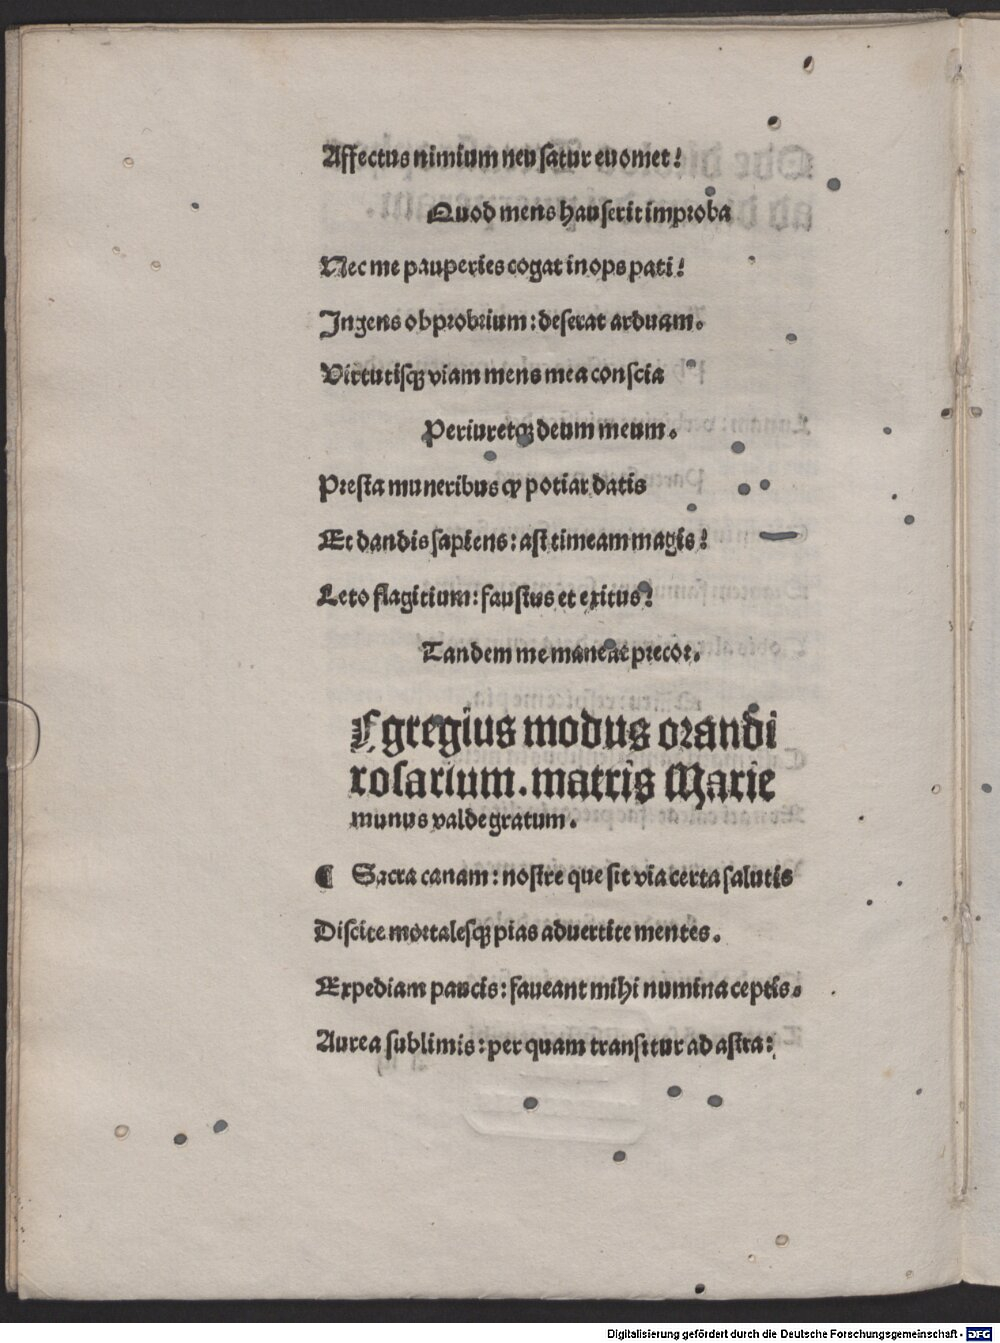 Affectus nimium neu ſatur euomet!
Quod mens hauſerit improba
Nec me pauperies cogat inops pati!
Ingens obprobrium: deſerat arduam.
Virtutiſqꝫ viam mens mea conſcia
Periuretqꝫ deum meum.
Preſta muneribus ꝙ potiar datis
Et dandis ſapiens: aſt timeam magis!
Leto flagitium: fauſtus et exitus!
Tandem me maneat precor.
Egregius modus orandi
roſarium. matris Marie
munus valde gratum.
¶ Sacra canam: noſtre que ſit via certa ſalutis
Diſcite mortaleſqꝫ pias aduertite mentes.
Expediam paucis: faueant mihi numina ceptis.
Aurea ſublimis: per quam tranſitur ad aſtra:
Digitalisierung gefördert durch die Deutsche Forschungsgemeinschaft - DFG